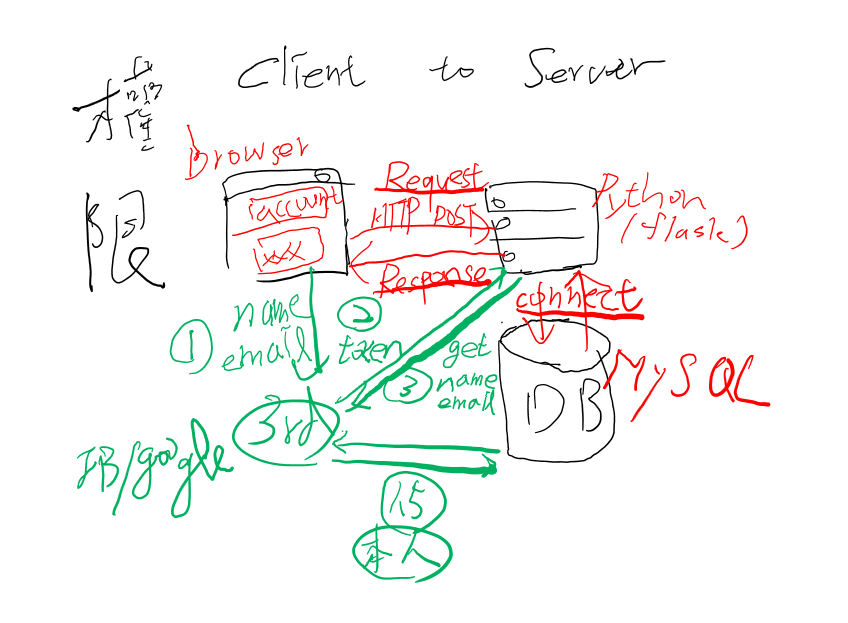 Client to Server
權
限
Browser
account
xxx
Request
HTTP POST
Response
Python
(flask)
connect
MySQL
DB
1
name
email
2
token
3
get
name
email
3rd
FB/google
1.5
本人